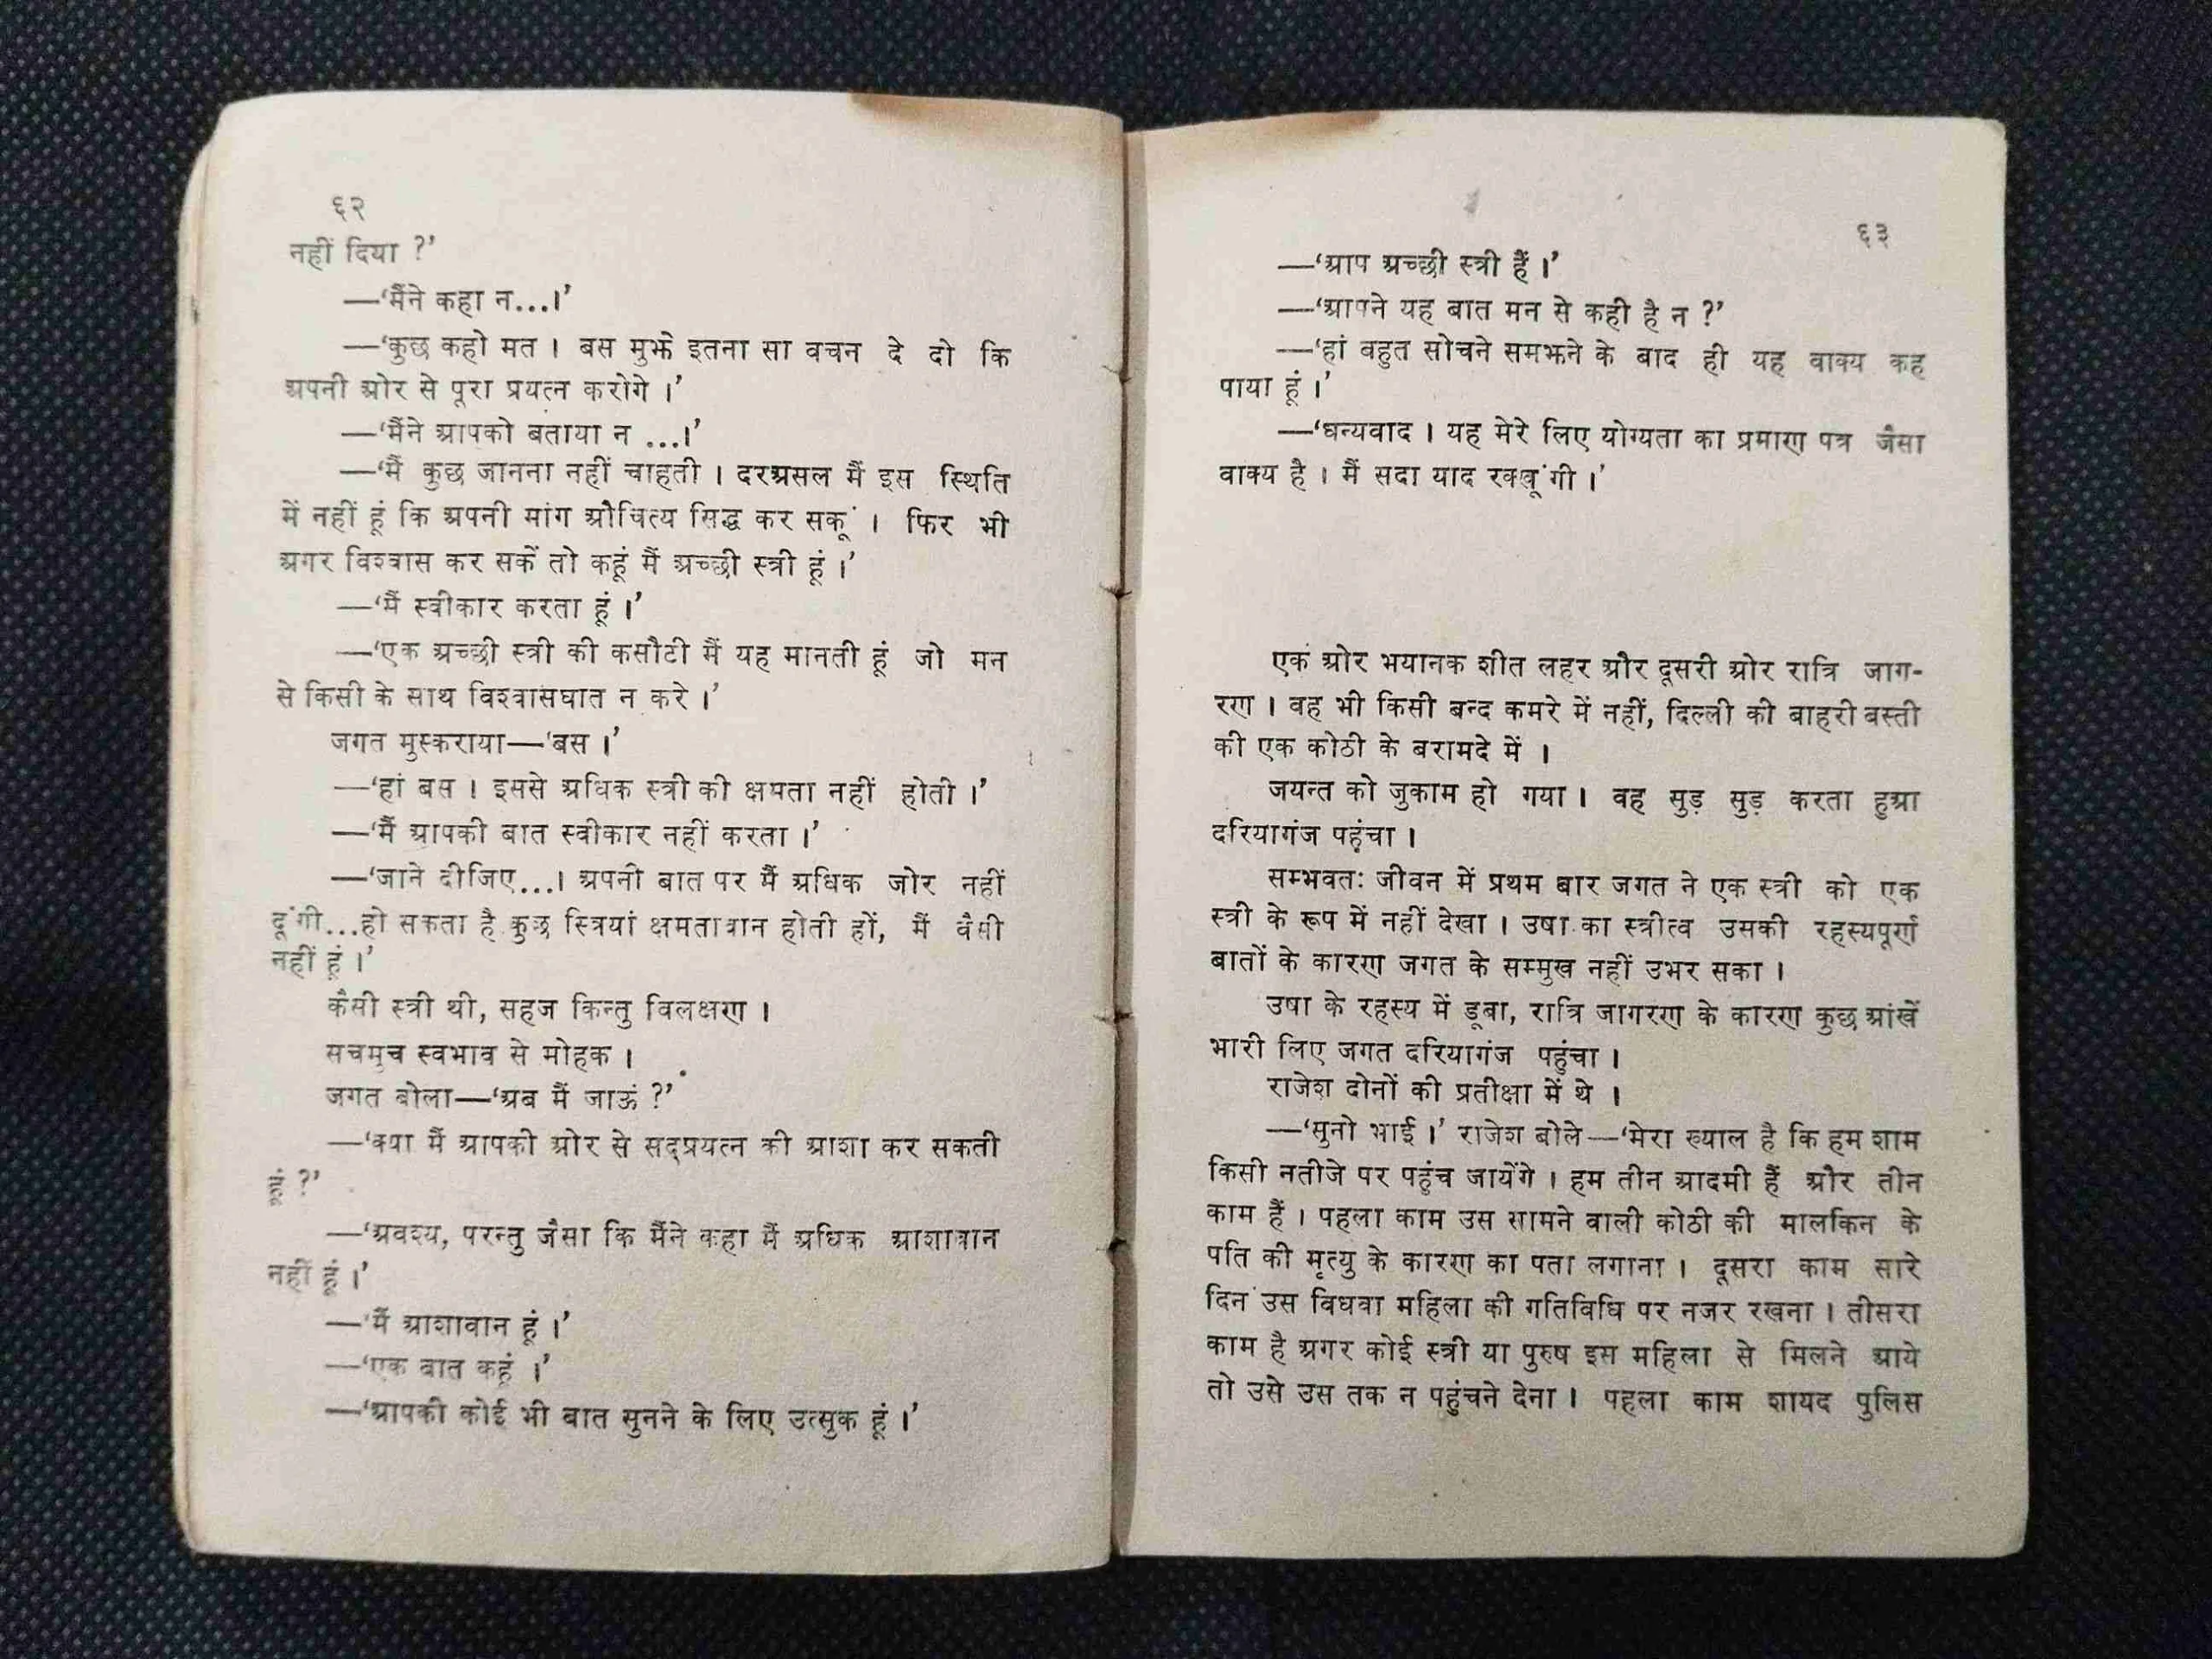 ६२
नहीं दिया ?’
—‘मैंने कहा न...।’
—‘कुछ कहो मत । बस मुझे इतना सा वचन दे दो कि
अपनी ओर से पूरा प्रयत्न करोगे ।’
—‘मैंने आपको बताया न ...।’
—‘मैं कुछ जानना नहीं चाहती । दरअसल मैं इस स्थिति
में नहीं हूं कि अपनी मांग औचित्य सिद्ध कर सकूं । फिर भी
अगर विश्वास कर सकें तो कहूं मैं अच्छी स्त्री हूं ।’
—‘मैं स्वीकार करता हूं ।’
—‘एक अच्छी स्त्री की कसौटी मैं यह मानती हूं जो मन
से किसी के साथ विश्वासघात न करे ।’
जगत मुस्कराया—‘बस ।’
—‘हां बस । इससे अधिक स्त्री की क्षमता नहीं होती ।’
—‘मैं आपकी बात स्वीकार नहीं करता ।’
—‘जाने दीजिए...। अपनी बात पर मैं अधिक जोर नहीं
दूंगी...हो सकता है कुछ स्त्रियां क्षमतावान होती हों, मैं वैसी
नहीं हूं ।’
कैसी स्त्री थी, सहज किन्तु विलक्षण ।
सचमुच स्वभाव से मोहक ।
जगत बोला—‘अब मैं जाऊं ?’
—‘क्या मैं आपकी ओर से सद्प्रयत्न की आशा कर सकती
हूं ?’
—‘अवश्य, परन्तु जैसा कि मैंने कहा मैं अधिक आशावान
नहीं हूं ।’
—‘मैं आशावान हूं ।’
—‘एक बात कहूं ।’
—‘आपकी कोई भी बात सुनने के लिए उत्सुक हूं ।’
६३
—‘आप अच्छी स्त्री हैं ।’
—‘आपने यह बात मन से कही है न ?’
—‘हां बहुत सोचने समझने के बाद ही यह वाक्य कह
पाया हूं ।’
—‘धन्यवाद । यह मेरे लिए योग्यता का प्रमाण पत्र जैसा
वाक्य है । मैं सदा याद रक्खूंगी ।’
एक ओर भयानक शीत लहर और दूसरी ओर रात्रि जाग-
रण । वह भी किसी बन्द कमरे में नहीं, दिल्ली की बाहरी बस्ती
की एक कोठी के बरामदे में ।
जयन्त को जुकाम हो गया । वह सुड़ सुड़ करता हुआ
दरियागंज पहुंचा ।
सम्भवतः जीवन में प्रथम बार जगत ने एक स्त्री को एक
स्त्री के रूप में नहीं देखा । उषा का स्त्रीत्व उसकी रहस्यपूर्ण
बातों के कारण जगत के सम्मुख नहीं उभर सका ।
उषा के रहस्य में डूबा, रात्रि जागरण के कारण कुछ आंखें
भारी लिए जगत दरियागंज पहुंचा ।
राजेश दोनों की प्रतीक्षा में थे ।
—‘सुनो भाई ।’ राजेश बोले—‘मेरा ख्याल है कि हम शाम
किसी नतीजे पर पहुंच जायेंगे । हम तीन आदमी हैं और तीन
काम हैं । पहला काम उस सामने वाली कोठी की मालकिन के
पति की मृत्यु के कारण का पता लगाना । दूसरा काम सारे
दिन उस विधवा महिला की गतिविधि पर नजर रखना । तीसरा
काम है अगर कोई स्त्री या पुरुष इस महिला से मिलने आये
तो उसे उस तक न पहुंचने देना । पहला काम शायद पुलिस